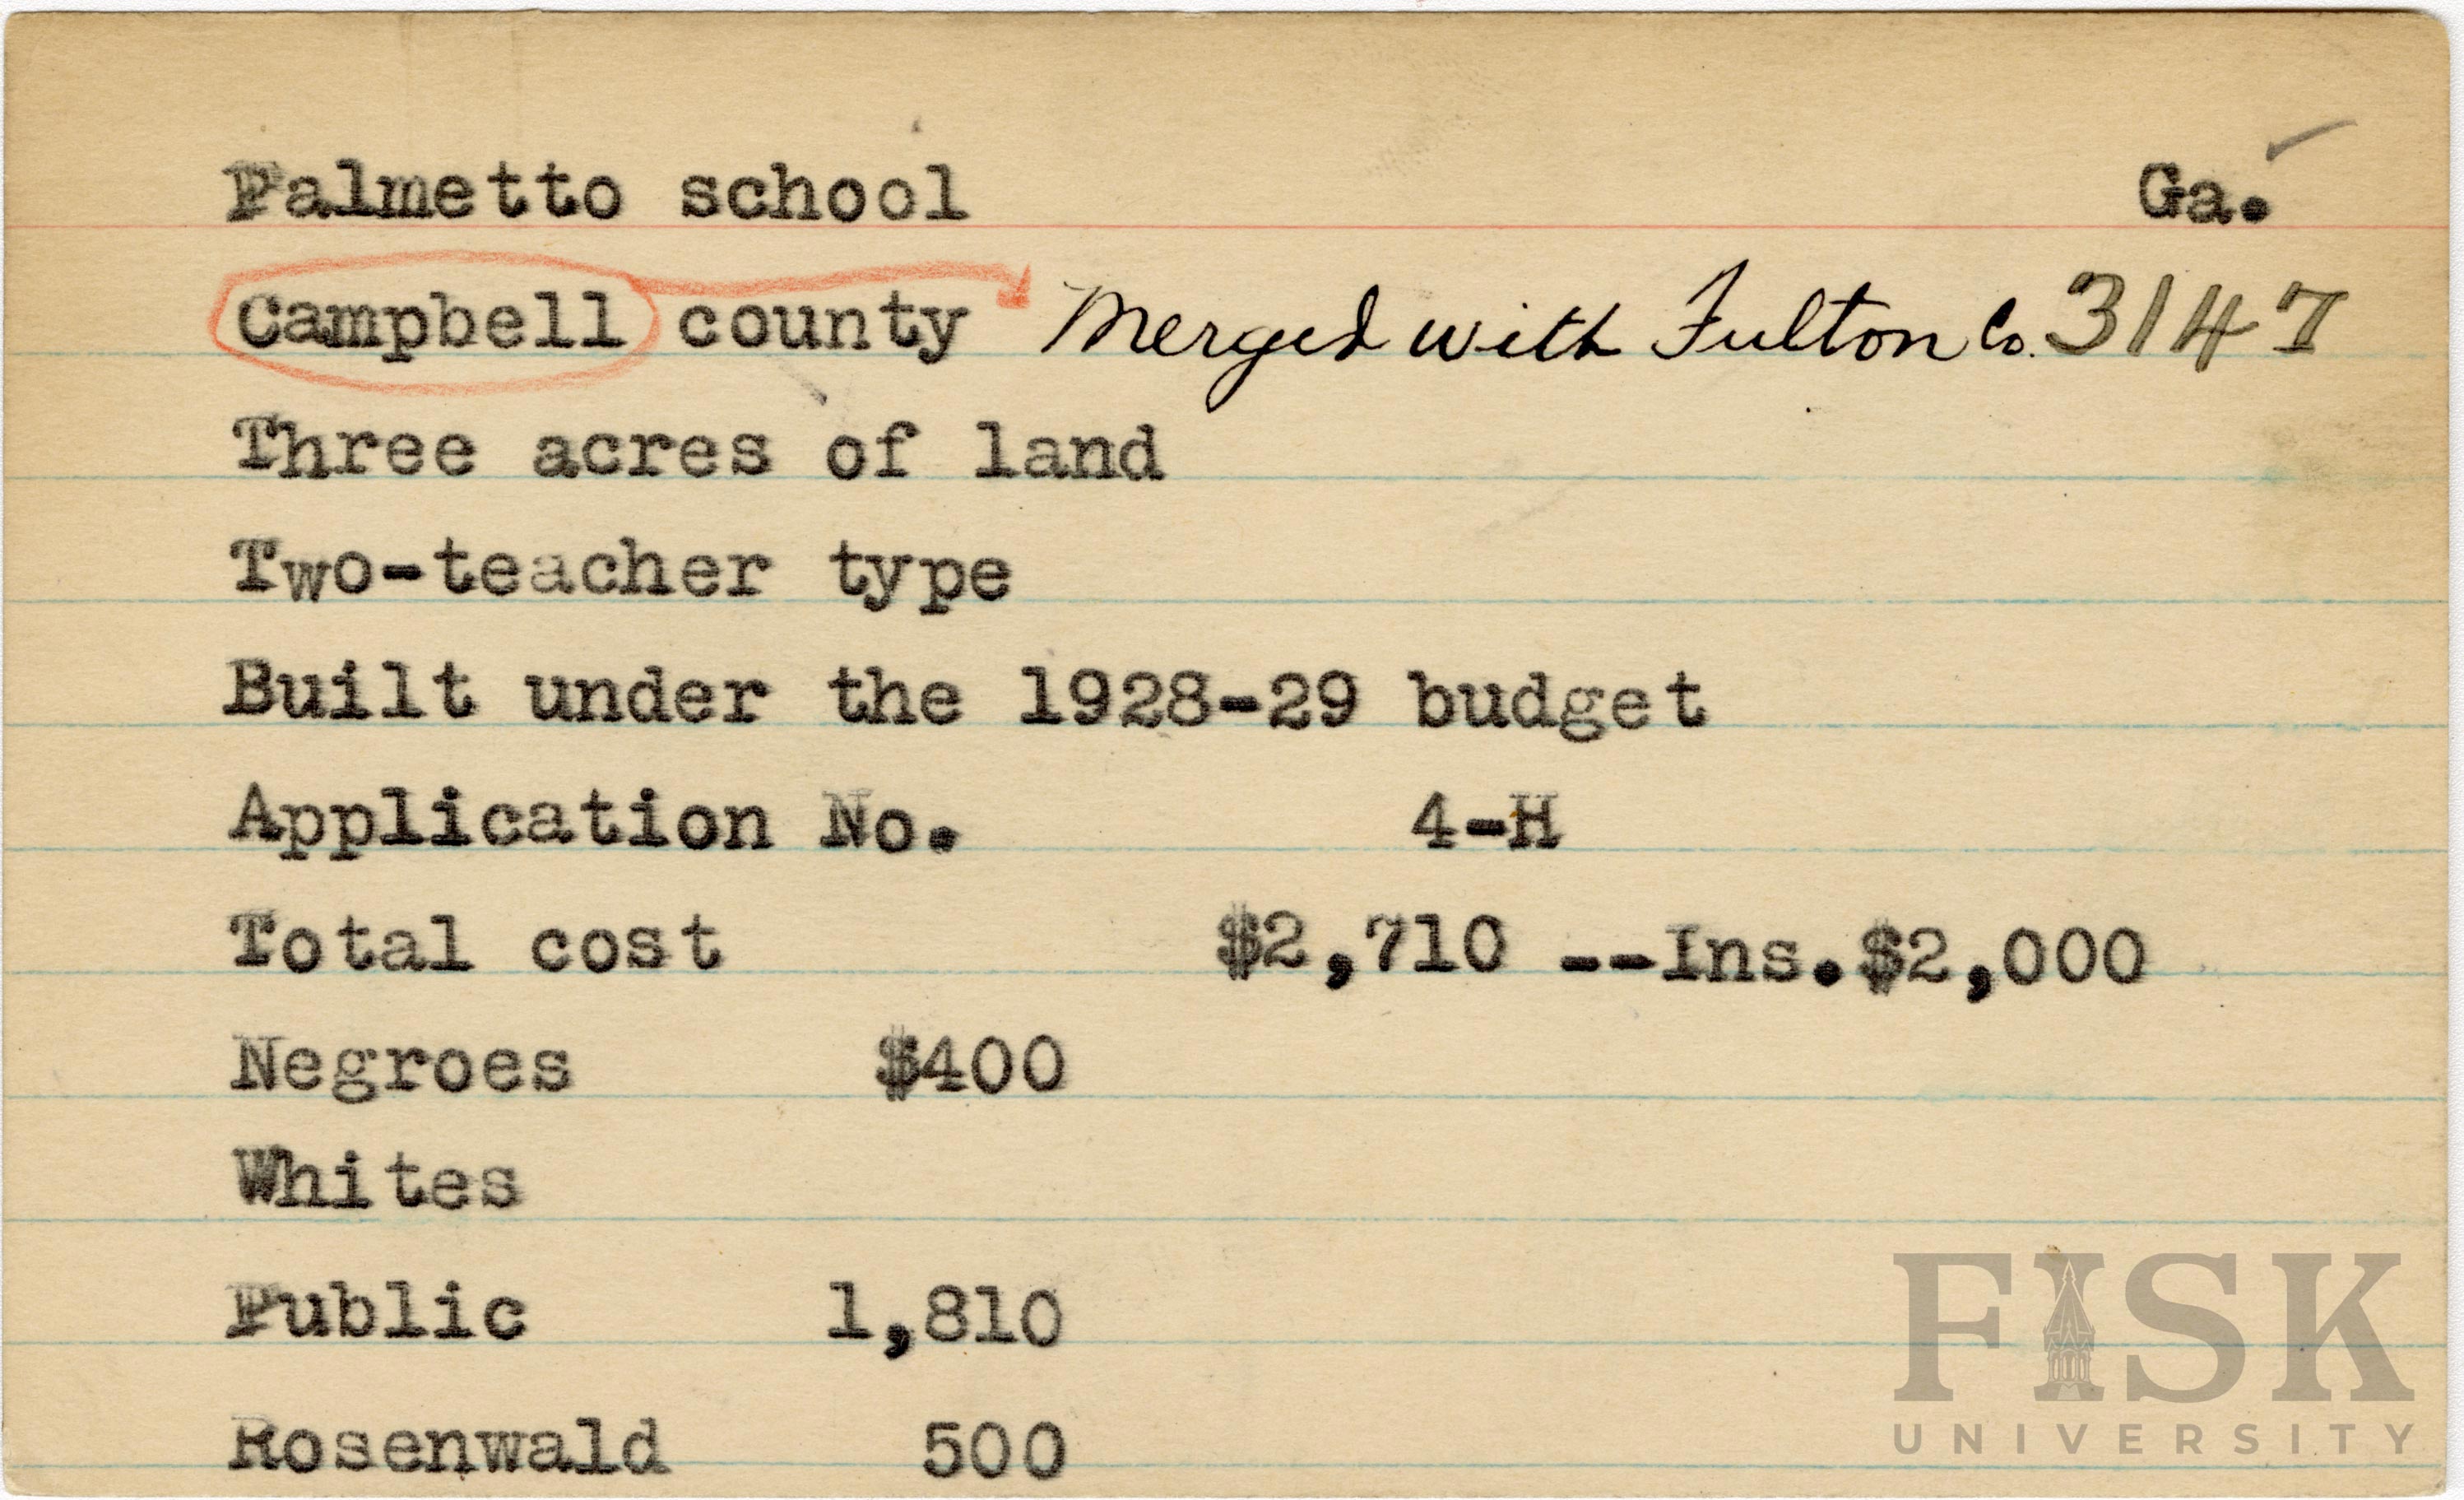 Palmetto school Ga.
Campbell county Merged with Fulton Co. 3147
Three acres of land
Two-teacher type
Built under the 1928-29 budget
Application No. 4-H
Total cost $2,710 --Ins.$2,000
Negroes $400
Whites
Public 1,810
Rosenwald 500
FISK
UNIVERSITY